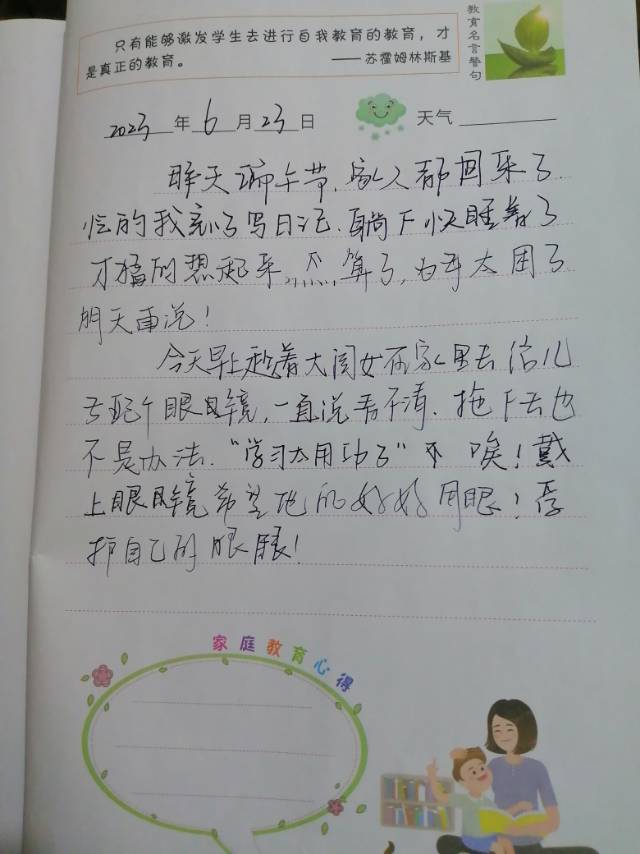 只有能够激发学生去进行自我教育的教育，才
是真正的教育。 ——苏霍姆林斯基
教育名言警句
2023年6月23日 天气
昨天端午节，家人都回来了
忙的我忘了写日记，躺下快睡着了
才猛的想起来，，，算了，太困了
明天再说！
今天早上趁着大闺女在家里去给儿
子配个眼镜，一直说看不清．拖下去也
不是办法．“学习太用功了” 唉！戴
上眼镜希望他的好好用眼！爱
护自己的眼眼！
家庭教育心得